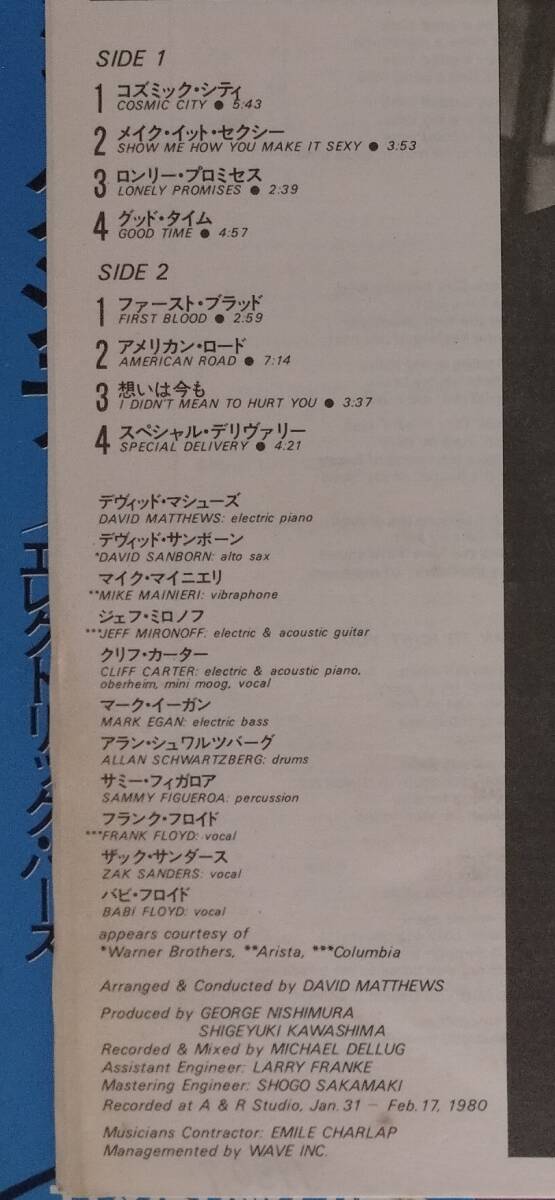 SIDE 1
1 コズミック・シティ
COSMIC CITY ● 5:43
2 メイク・イット・セクシー
SHOW ME HOW YOU MAKE IT SEXY ● 3:53
3 ロンリー・プロミセス
LONELY PROMISES ● 2:39
4 グッド・タイム
GOOD TIME ● 4:57
SIDE 2
1 ファースト・ブラッド
FIRST BLOOD ● 2:59
2 アメリカン・ロード
AMERICAN ROAD ● 7:14
3 想いは今も
I DIDN'T MEAN TO HURT YOU ● 3:37
4 スペシャル・デリヴァリー
SPECIAL DELIVERY ● 4:21
デヴィッド・マシューズ
DAVID MATTHEWS: electric piano
デヴィッド・サンボーン
*DAVID SANBORN: alto sax
マイク・マイニエリ
**MIKE MAINIERI: vibraphone
ジェフ・ミロノフ
***JEFF MIRONOFF: electric & acoustic guitar
クリフ・カーター
CLIFF CARTER: electric & acoustic piano,
oberheim, mini moog, vocal
マーク・イーガン
MARK EGAN: electric bass
アラン・シュワルツバーグ
ALLAN SCHWARTZBERG: drums
サミー・フィガロア
SAMMY FIGUEROA: percussion
フランク・フロイド
***FRANK FLOYD: vocal
ザック・サンダース
ZAK SANDERS: vocal
バビ・フロイド
BABI FLOYD: vocal
appears courtesy of
*Warner Brothers, **Arista, ***Columbia
Arranged & Conducted by DAVID MATTHEWS
Produced by GEORGE NISHIMURA
SHIGEYUKI KAWASHIMA
Recorded & Mixed by MICHAEL DELLUG
Assistant Engineer: LARRY FRANKE
Mastering Engineer: SHOGO SAKAMAKI
Recorded at A & R Studio, Jan. 31 – Feb. 17, 1980
Musicians Contractor: EMILE CHARLAP
Managemented by WAVE INC.
エレクトリック・バーズ